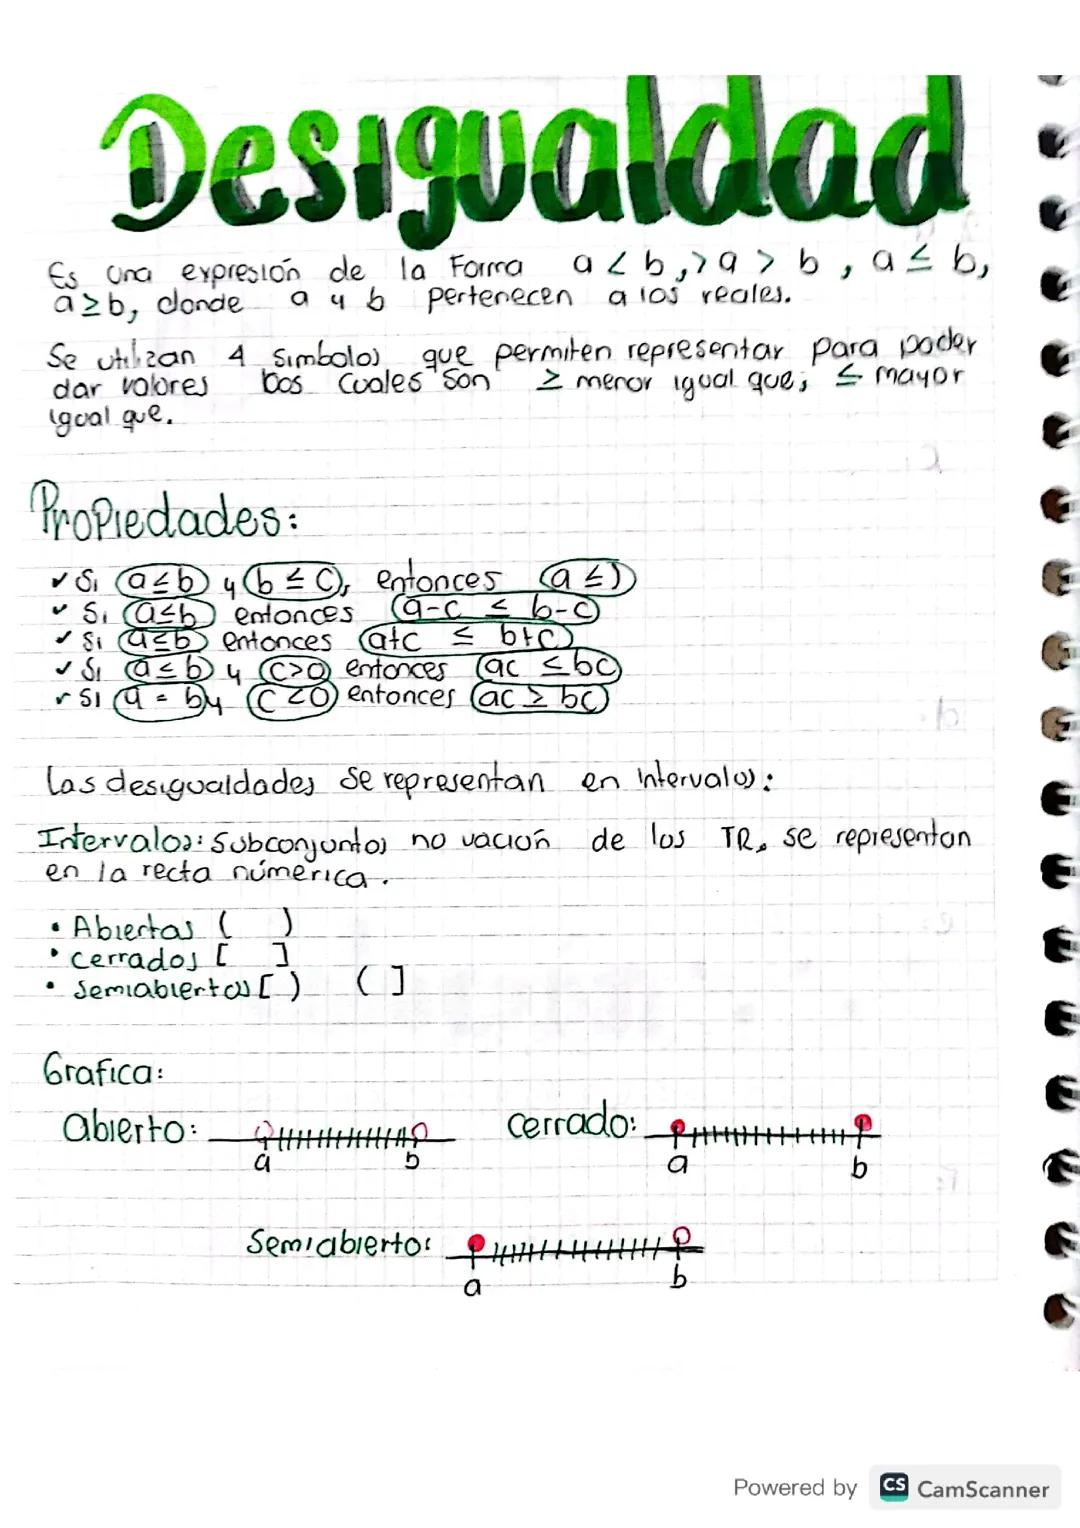 Desigualdad
Es una expresión de la Forma a < b, > a > b, a ≤ b,
a ≥ b, donde a y b pertenecen a los reales.
Se utilizan 4 simbolos que permiten representar para poder
dar valores los cuales son ≥ menor igual que; ≤ mayor
igual que.
Propiedades:
✓ Si a≤b y b≤c, entonces a≤)
✓ Si a≤b entonces a-c ≤ b-c
✓ Si a≤b entonces a+c ≤ b+c
✓ Si a≤b y c>0 entonces ac ≤ bc
r Si a = b y c<0 entonces ac ≥ bc
Las desigualdades se representan en intervalos:
Intervalos: Subconjuntos no vación de los IR, se representan
en la recta númerica.
• Abiertas ( )
• cerrados [ ]
• Semiabiertos [ ) ( ]
Grafica:
abierto: cerrado:
a b a b
Semiabierto:
a b
Powered by CS CamScanner